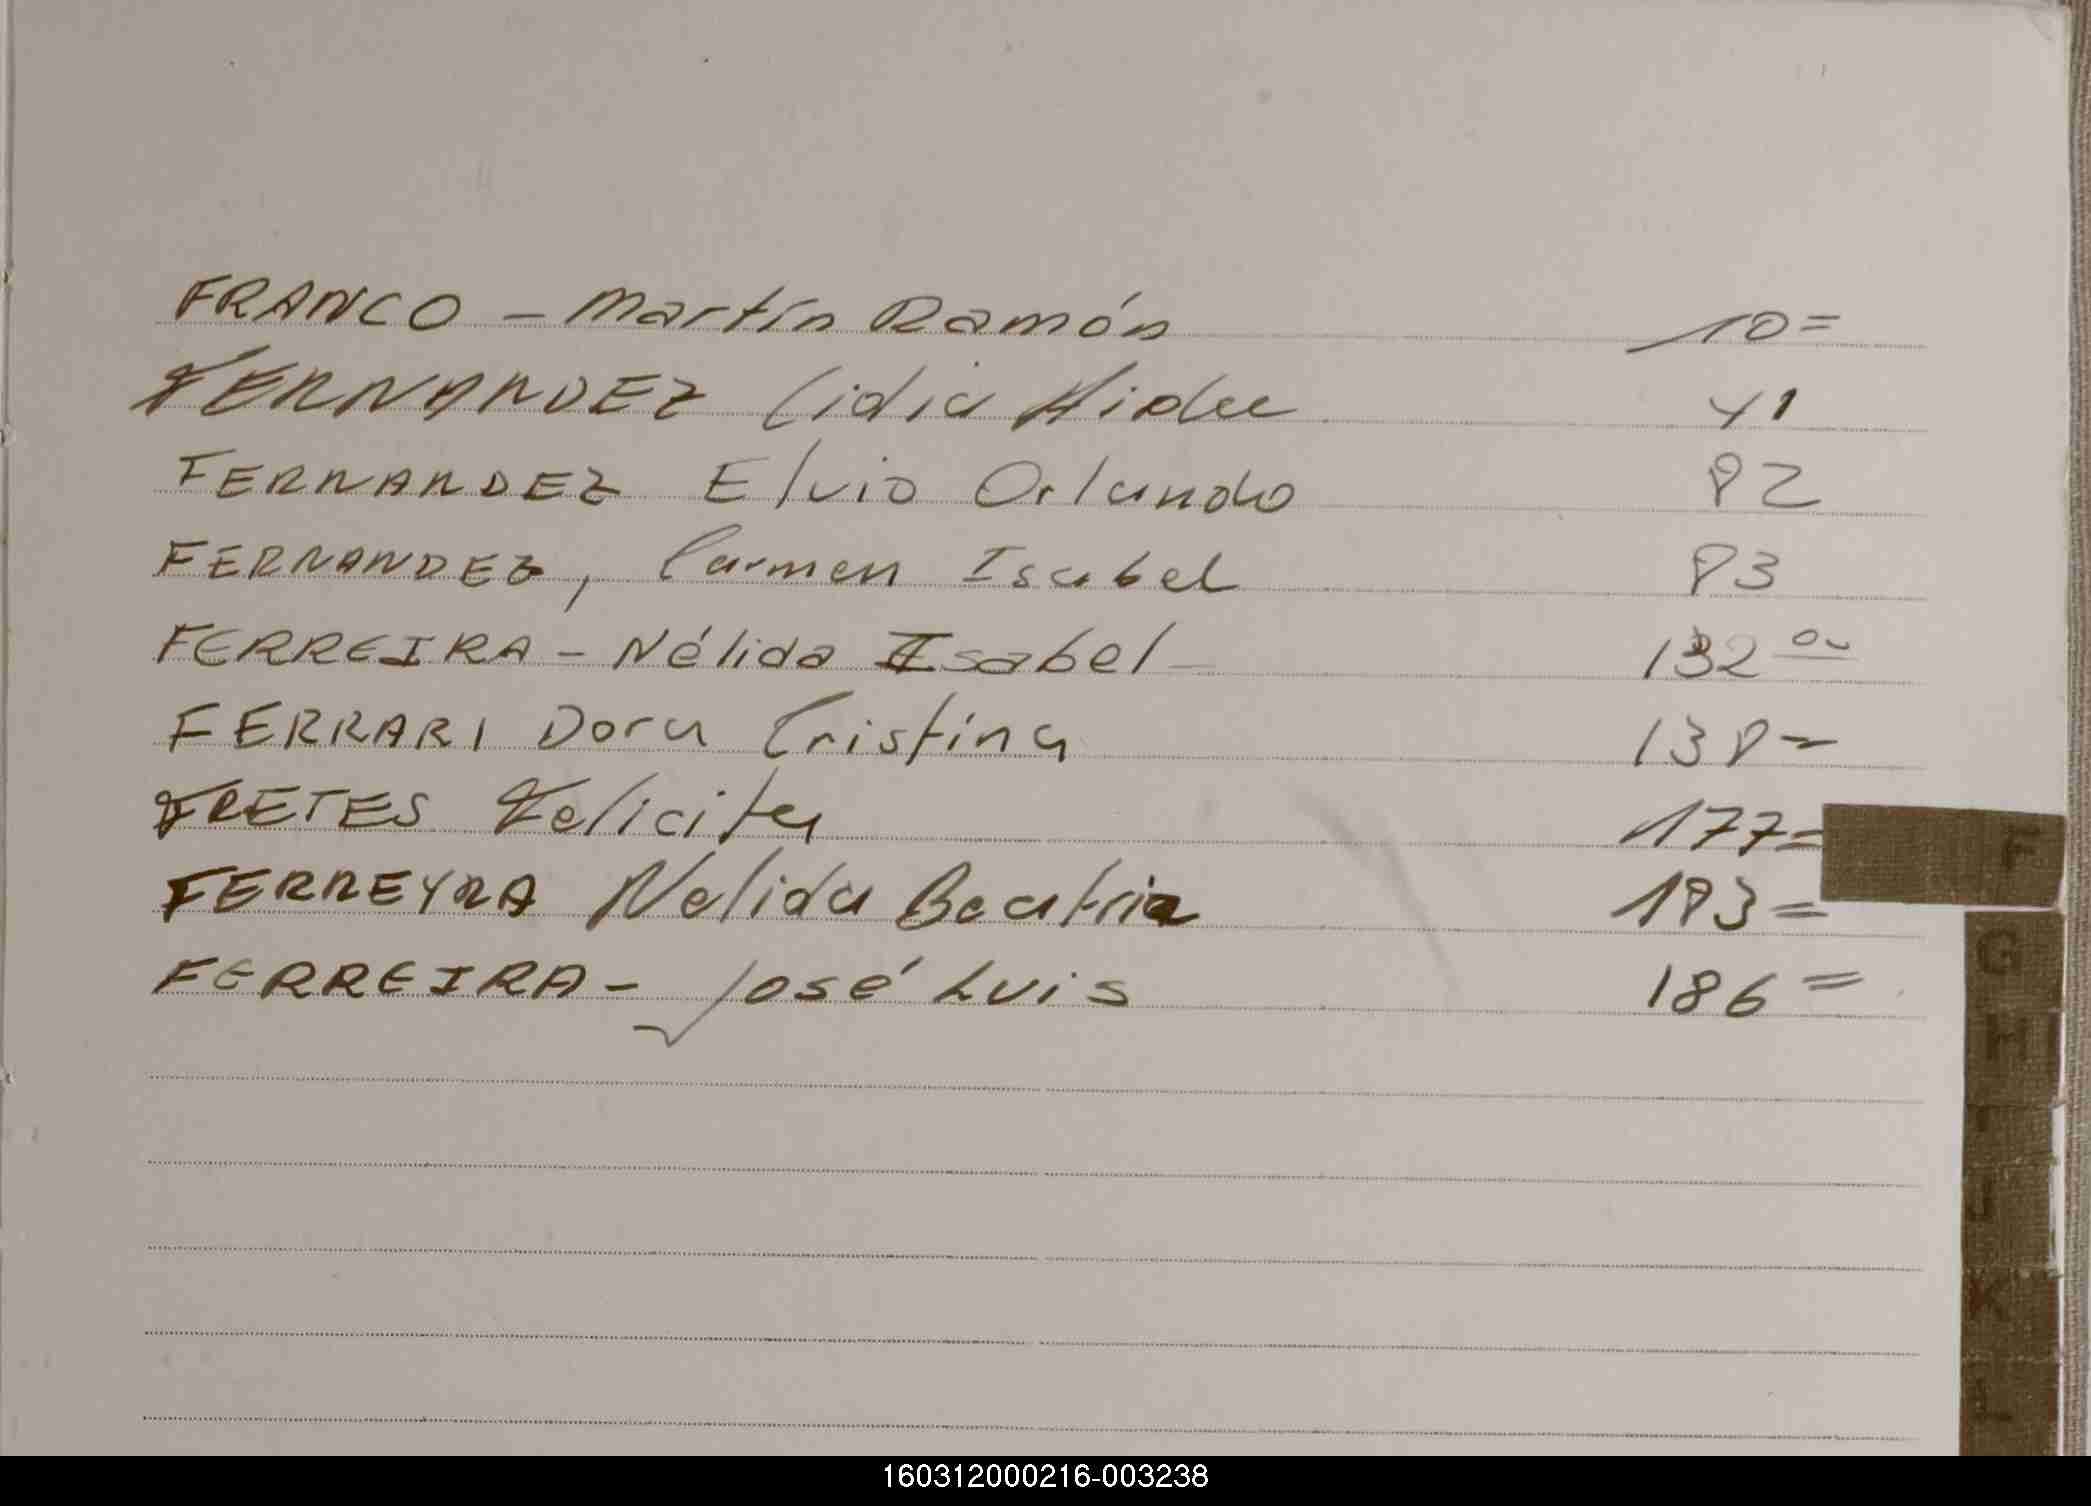 FRANCO - Martín Ramón 10=
FERNANDEZ Lidia Hidee 41
FERNANDEZ Elvio Orlando 82
FERNANDEZ, Carmen Isabel 83
FERREIRA - Nélida Isabel 132 00
FERRARI Dora Cristina 138 =
FRETES Felicita 177=
F
FERREYRA Nelida Beatriz 183=
G
FERREIRA - José Luis 186=
H
I
J
K
L
160312000216-003238